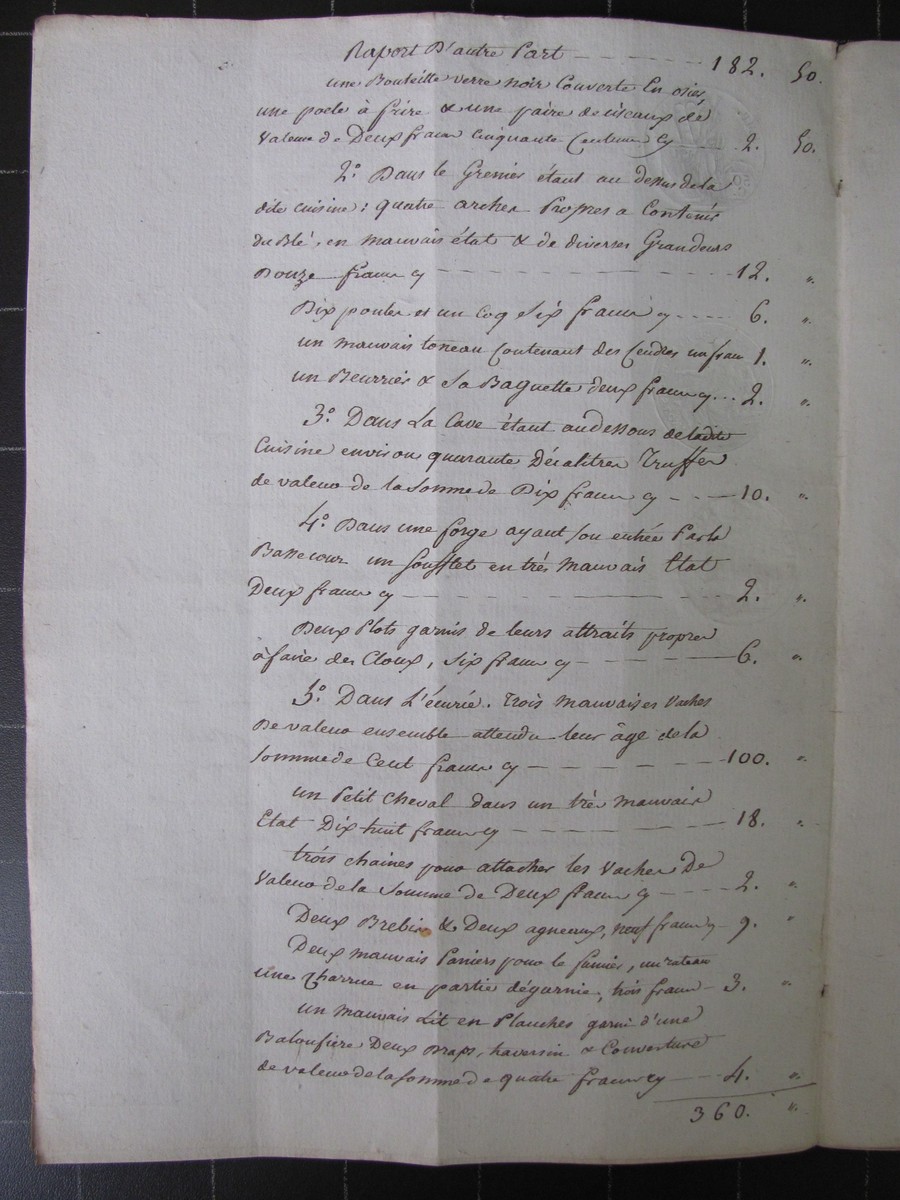 Raport D'autre Part - - - - - - 182. 50.
une Bouteille verre noir Couverte En osier
une poele à frire & une paire de ciseaux de
valeur de Deux francs Cinquante Centimes cy - - - 2. 50.
2.° Dans le Grenier étant au dessus de la
dite cuisine: quatre arches Propres a Contenir
du Blé, en mauvais état & de diverses Grandeurs
Douze francs cy - - - - - - 12. "
Dix poules et un Coq Six francs cy - - - - 6. "
un mauvais toneau Contenant des Cendres un fran 1. "
un Beurrier & Sa Baguette deux francs cy... 2. "
3.° Dans La Cave étant audessous de ladite
Cuisine environ quarante Décalitres Truffes
de valeur de la Somme de Dix francs cy - - - 10. "
4.° Dans une forge ayant son entrée Par la
Basse cour un soufflet en très mauvais Etat
Deux francs cy - - - - - - 2. "
Deux Plots garnis de leurs attraits propres
à faire des Cloux, Six francs cy - - - - 6. "
5.° Dans L'écurie. Trois mauvaises vaches
De valeur ensemble attendu leur âge de la
Somme de Cent francs cy - - - - - 100. "
un Petit Cheval dans un très mauvais
Etat Dix huit francs cy - - - - - 18. "
trois chaines pour attacher les vaches De
valeur de la Somme de Deux francs cy - - - - 2. "
Deux Brebis & Deux agneaux, neuf francs cy - 9. "
Deux mauvais Paniers pour le fumier, un rateau
une Charrue en partie dégarnie, trois francs - 3. "
un mauvais Lit en Planches garni d'une
Baloufiere Deux Draps, traversin & Couverture
de valeur de la somme de quatre francs cy - 4. "
360. "